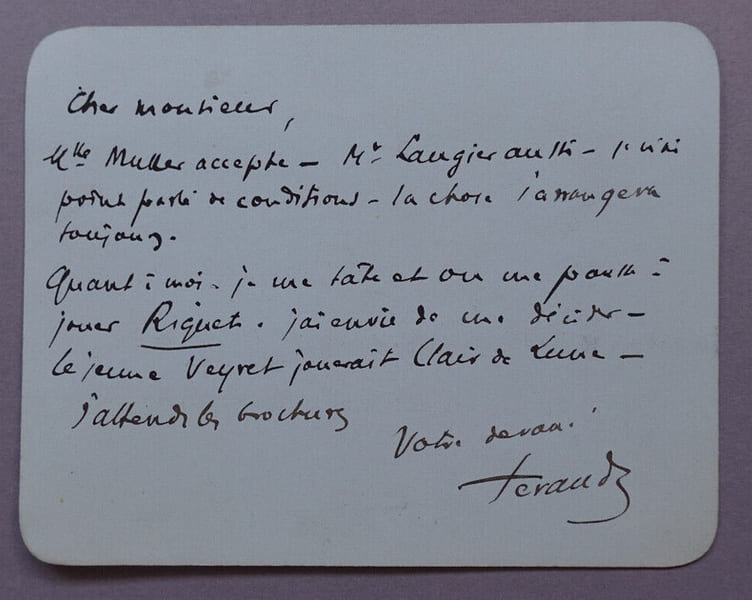 Cher monsieur,
Mlle Muller accepte – Mr Laugier aussi – je n'ai
point parlé de conditions – la chose s'arrangera
toujours.
Quant à moi – je me tâte et on me pousse à
jouer Riquet. j'ai envie de me décider –
le jeune Veyret jouerait Clair de Lune –
J'attends les brochures
Votre dévoué
Feraudy